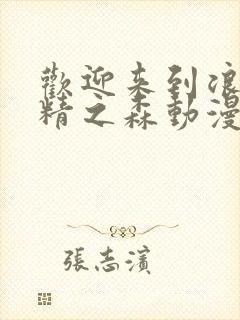 歡迎来到浪
精之森動漫
張志濱